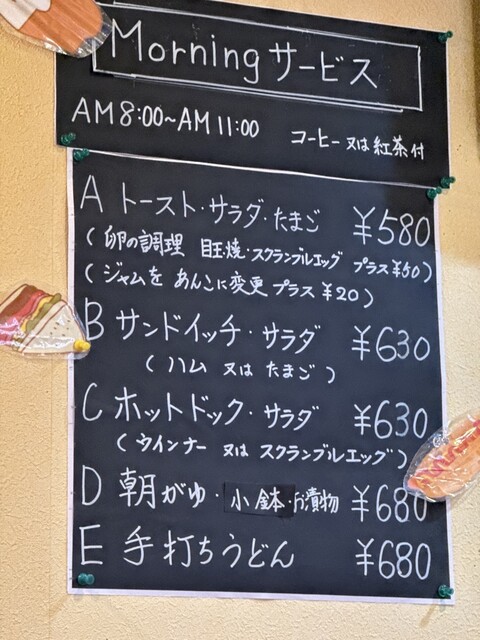 Morningサービス
AM8:00~AM11:00 コーヒー又は紅茶付
A トースト・サラダ・たまご ¥580
(卵の調理 目玉焼・スクランブルエッグ プラス¥50)
(ジャムを あんこに変更 プラス¥20)
B サンドイッチ・サラダ ¥630
(ハム 又は たまご)
C ホットドック・サラダ ¥630
(ウインナー 又は スクランブルエッグ)
D 朝がゆ・小鉢・お漬物 ¥680
E 手打ちうどん ¥680